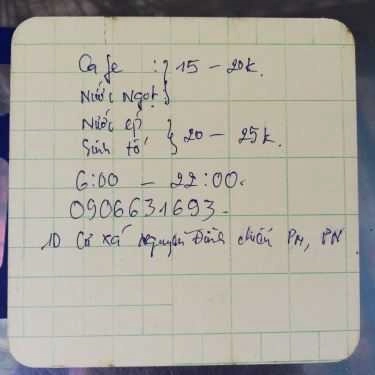 Cafe : } 15 – 20k.
Nước Ngọt }
Nước ép } 20 – 25k.
Sinh tố
6:00 – 22:00.
0906631693.
1D Cư xá Nguyễn Đình Chiểu P4, PN